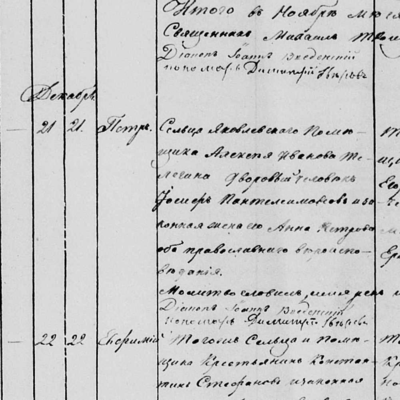 Итого въ Ноябрѣ
Священникъ Михаилъ
Діаконъ Іоаннъ Введенскій
пономарь Димитрій
Декабрь
21 21. Петръ. Сельца Яковлевского Помѣ-
щика Алексѣя Иванова
дворовый человѣкъ
Іосифъ Пантелеимоновъ и за-
конная жена его Анна Петрова
оба православнаго вѣроиспо-
вѣданія.
Молитвословилъ, имя
Діаконъ Іоаннъ Введенскій
пономарь Димитрій
22 22 Тогожъ Сельца и Помѣ-
щика Крестьянинъ Констан-
тинъ Стефановъ и законная